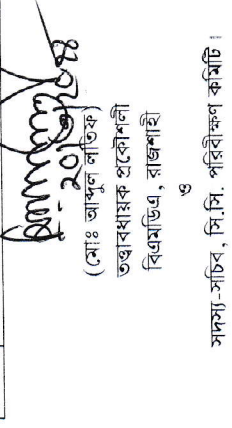 (মোঃ আব্দুল লতিফ)
তত্ত্বাবধায়ক প্রকৌশলী
বিএমডিএ, রাজশাহী
ও
সদস্য-সচিব, সি.সি. পরিবীক্ষণ কমিটি।